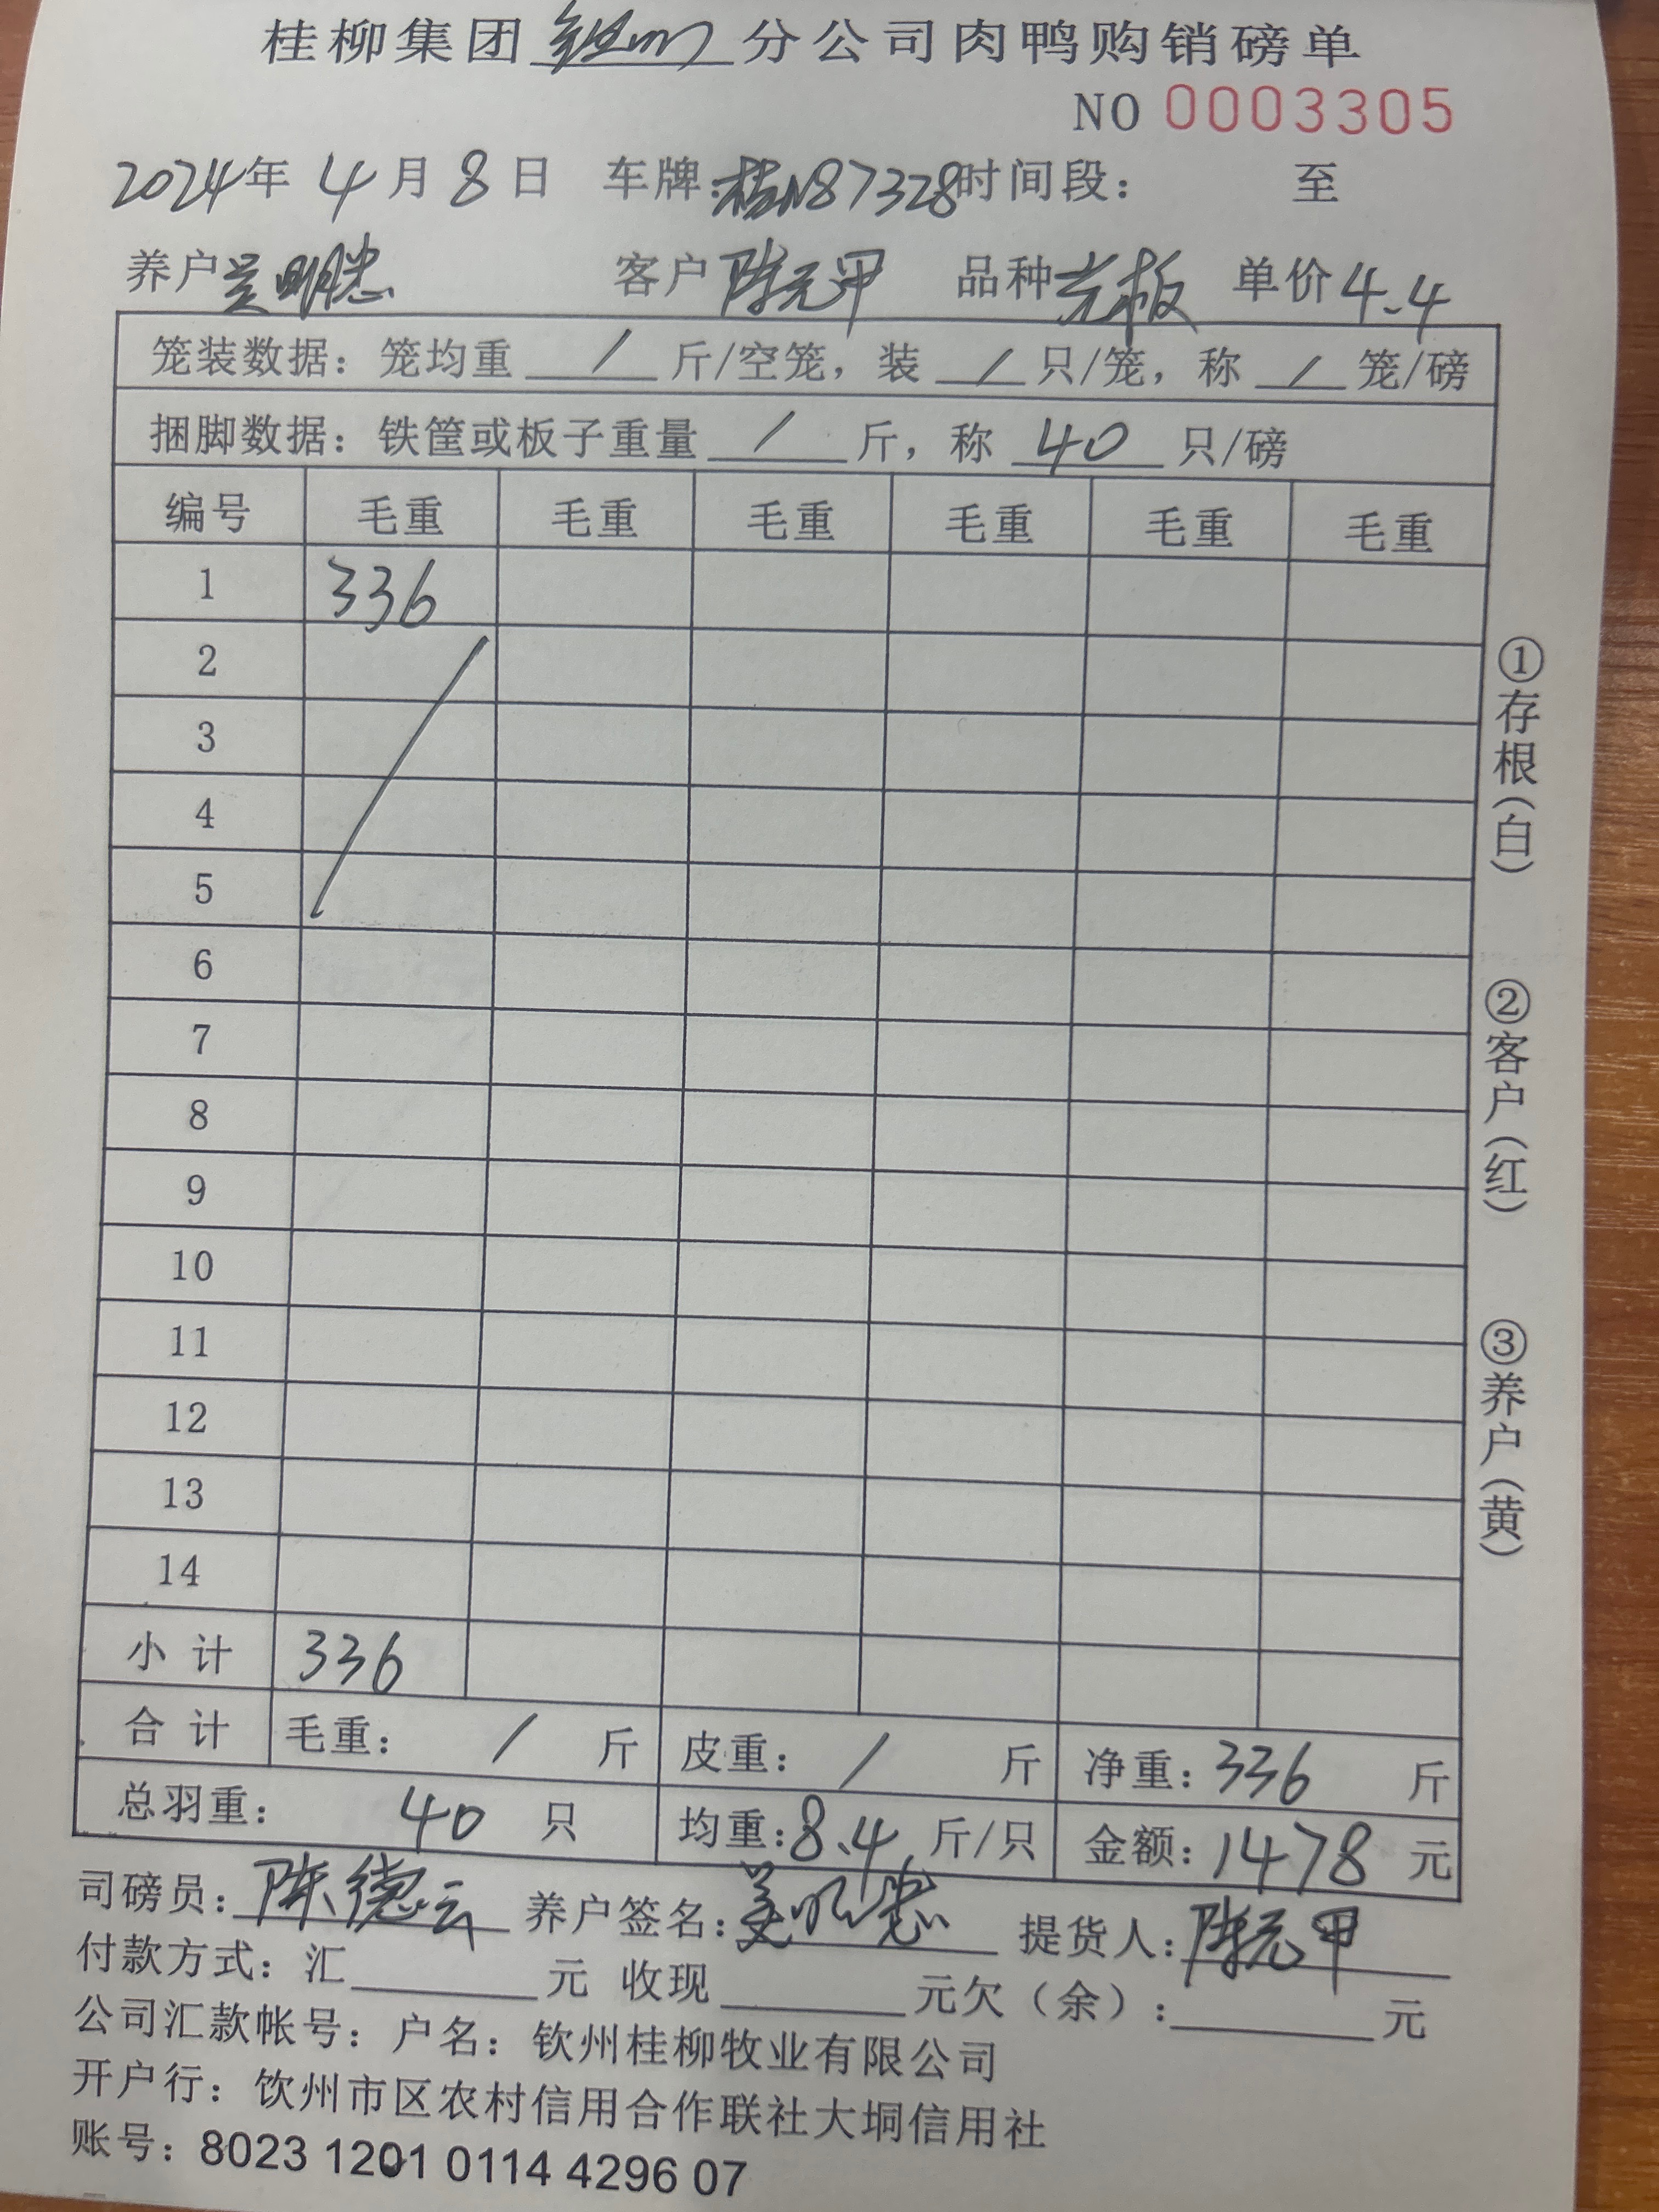 桂柳集团钦州分公司肉鸭购销磅单
NO 0003305
2024年 4月 8日 车牌:桂N87328时间段: 至
养户吴明忠 客户陈元甲 品种光板 单价4.4
笼装数据: 笼均重 / 斤/空笼, 装 / 只/笼, 称 / 笼/磅
捆脚数据: 铁筐或板子重量 / 斤, 称 40 只/磅
编号 毛重 毛重 毛重 毛重 毛重 毛重
1 336
2
3
4
5
6
7
8
9
10
11
12
13
14
小计 336
合计 毛重: / 斤 皮重: / 斤 净重: 336 斤
总羽重: 40 只 均重:8.4 斤/只 金额: 1478 元
司磅员: 陈德云 养户签名: 吴明忠 提货人: 陈元甲
付款方式: 汇 元 收现 元欠(余): 元
公司汇款帐号: 户名: 钦州桂柳牧业有限公司
开户行: 钦州市区农村信用合作联社大垌信用社
账号: 8023 1201 0114 4296 07
①存根(白)
②客户(红)
③养户(黄)